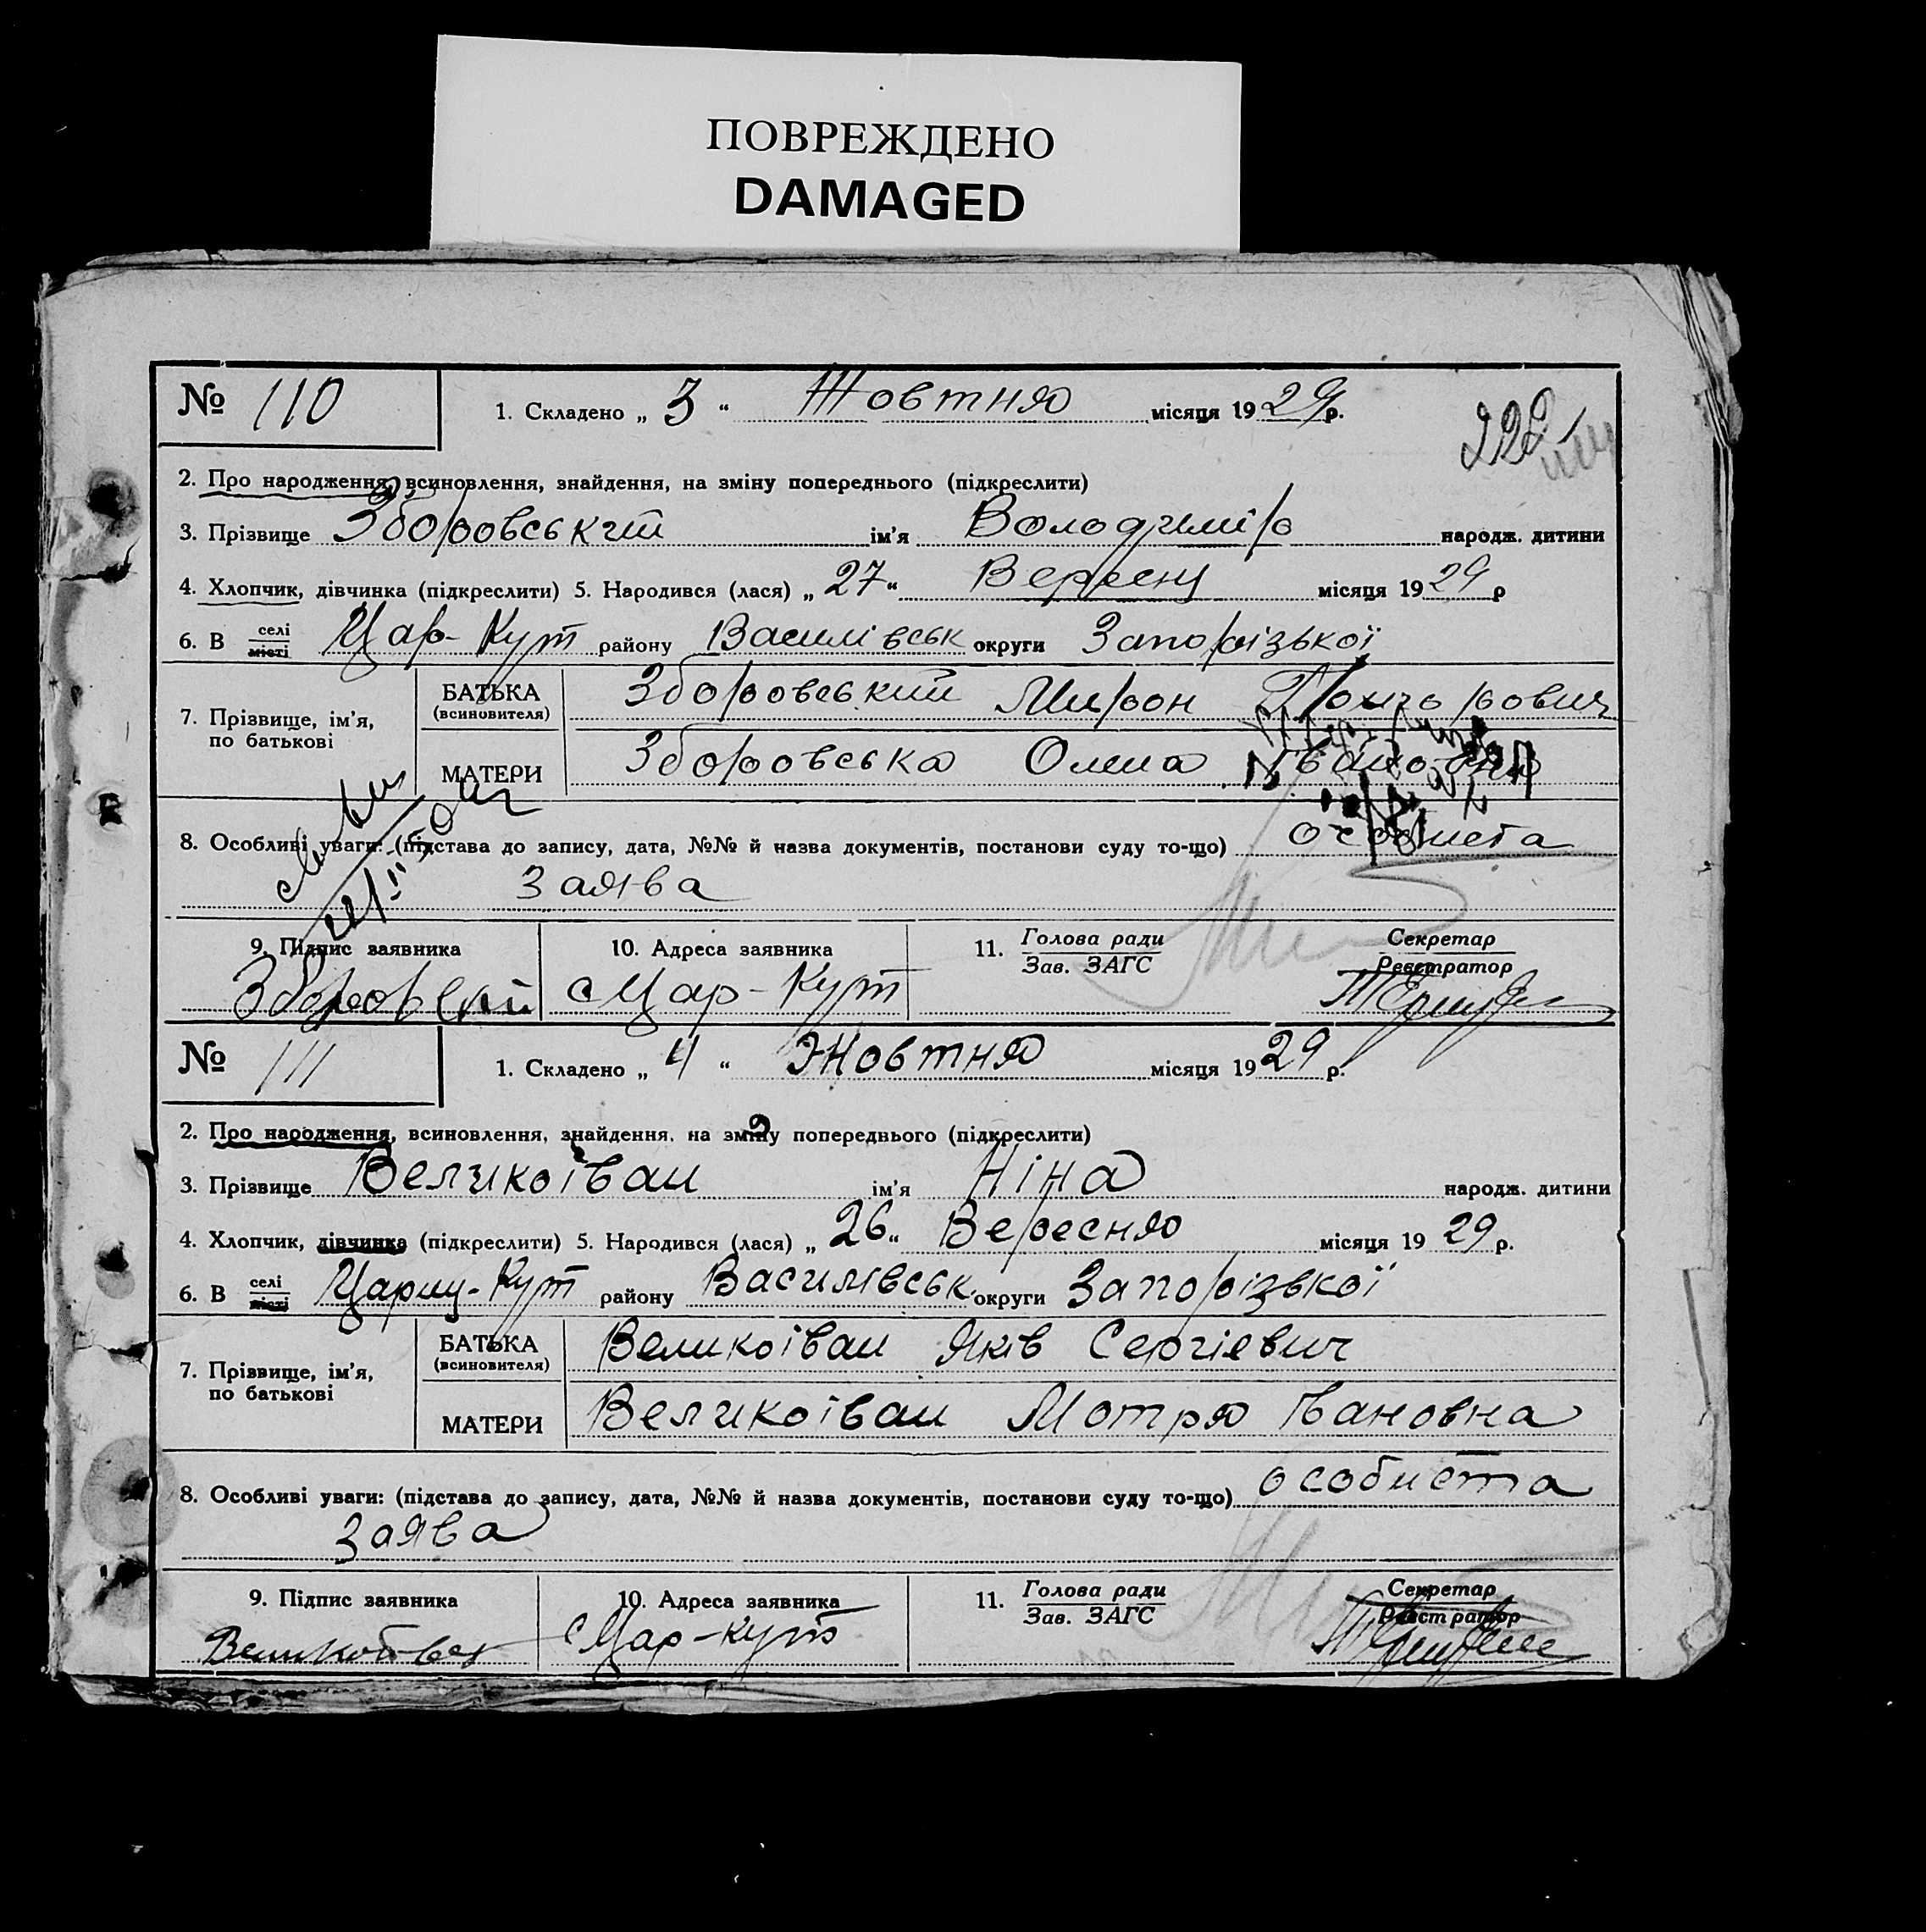 ПОВРЕЖДЕНО
DAMAGED
№ 110
1. Складено „ 3 “ Жовтня місяця 1929 р.
2. Про народження, всиновлення, знайдення, на зміну попереднього (підкреслити)
3. Прізвище Зборовський ім'я Володимір народж. дитини
4. Хлопчик, дівчинка (підкреслити) 5. Народився (лася) „ 27 “ Вересня місяця 1929 р
6. В селі місті Цар-Кут району Василівськ округи Запорізької
7. Прізвище, ім'я, по батькові
БАТЬКА (всиновителя) Зборовський Мирон
МАТЕРИ Зборовська Олена Івановна
8. Особливі уваги: (підстава до запису, дата, №№ й назва документів, постанови суду то-що) особиста
заява
9. Підпис заявника 10. Адреса заявника 11. Голова ради Зав. ЗАГС Секретар Реєстратор
Зборовский с Цар-Кут
№ 111
1. Складено „ 4 “ Жовтня місяця 1929 р.
2. Про народження, всиновлення, знайдення, на зміну попереднього (підкреслити)
3. Прізвище Великоіван ім'я Ніна народж. дитини
4. Хлопчик, дівчинка (підкреслити) 5. Народився (лася) „ 26 “ Вересня місяця 1929 р.
6. В селі місті Царицу-Кут району Василівськ. округи Запорізької
7. Прізвище, ім'я, по батькові
БАТЬКА (всиновителя) Великоіван Яків Сергіевич
МАТЕРИ Великоіван Мотря Івановна
8. Особливі уваги: (підстава до запису, дата, №№ й назва документів, постанови суду то-що) особиста
заява
9. Підпис заявника 10. Адреса заявника 11. Голова ради Зав. ЗАГС Секретар Реєстратор
Великоіван с Цар-Кут